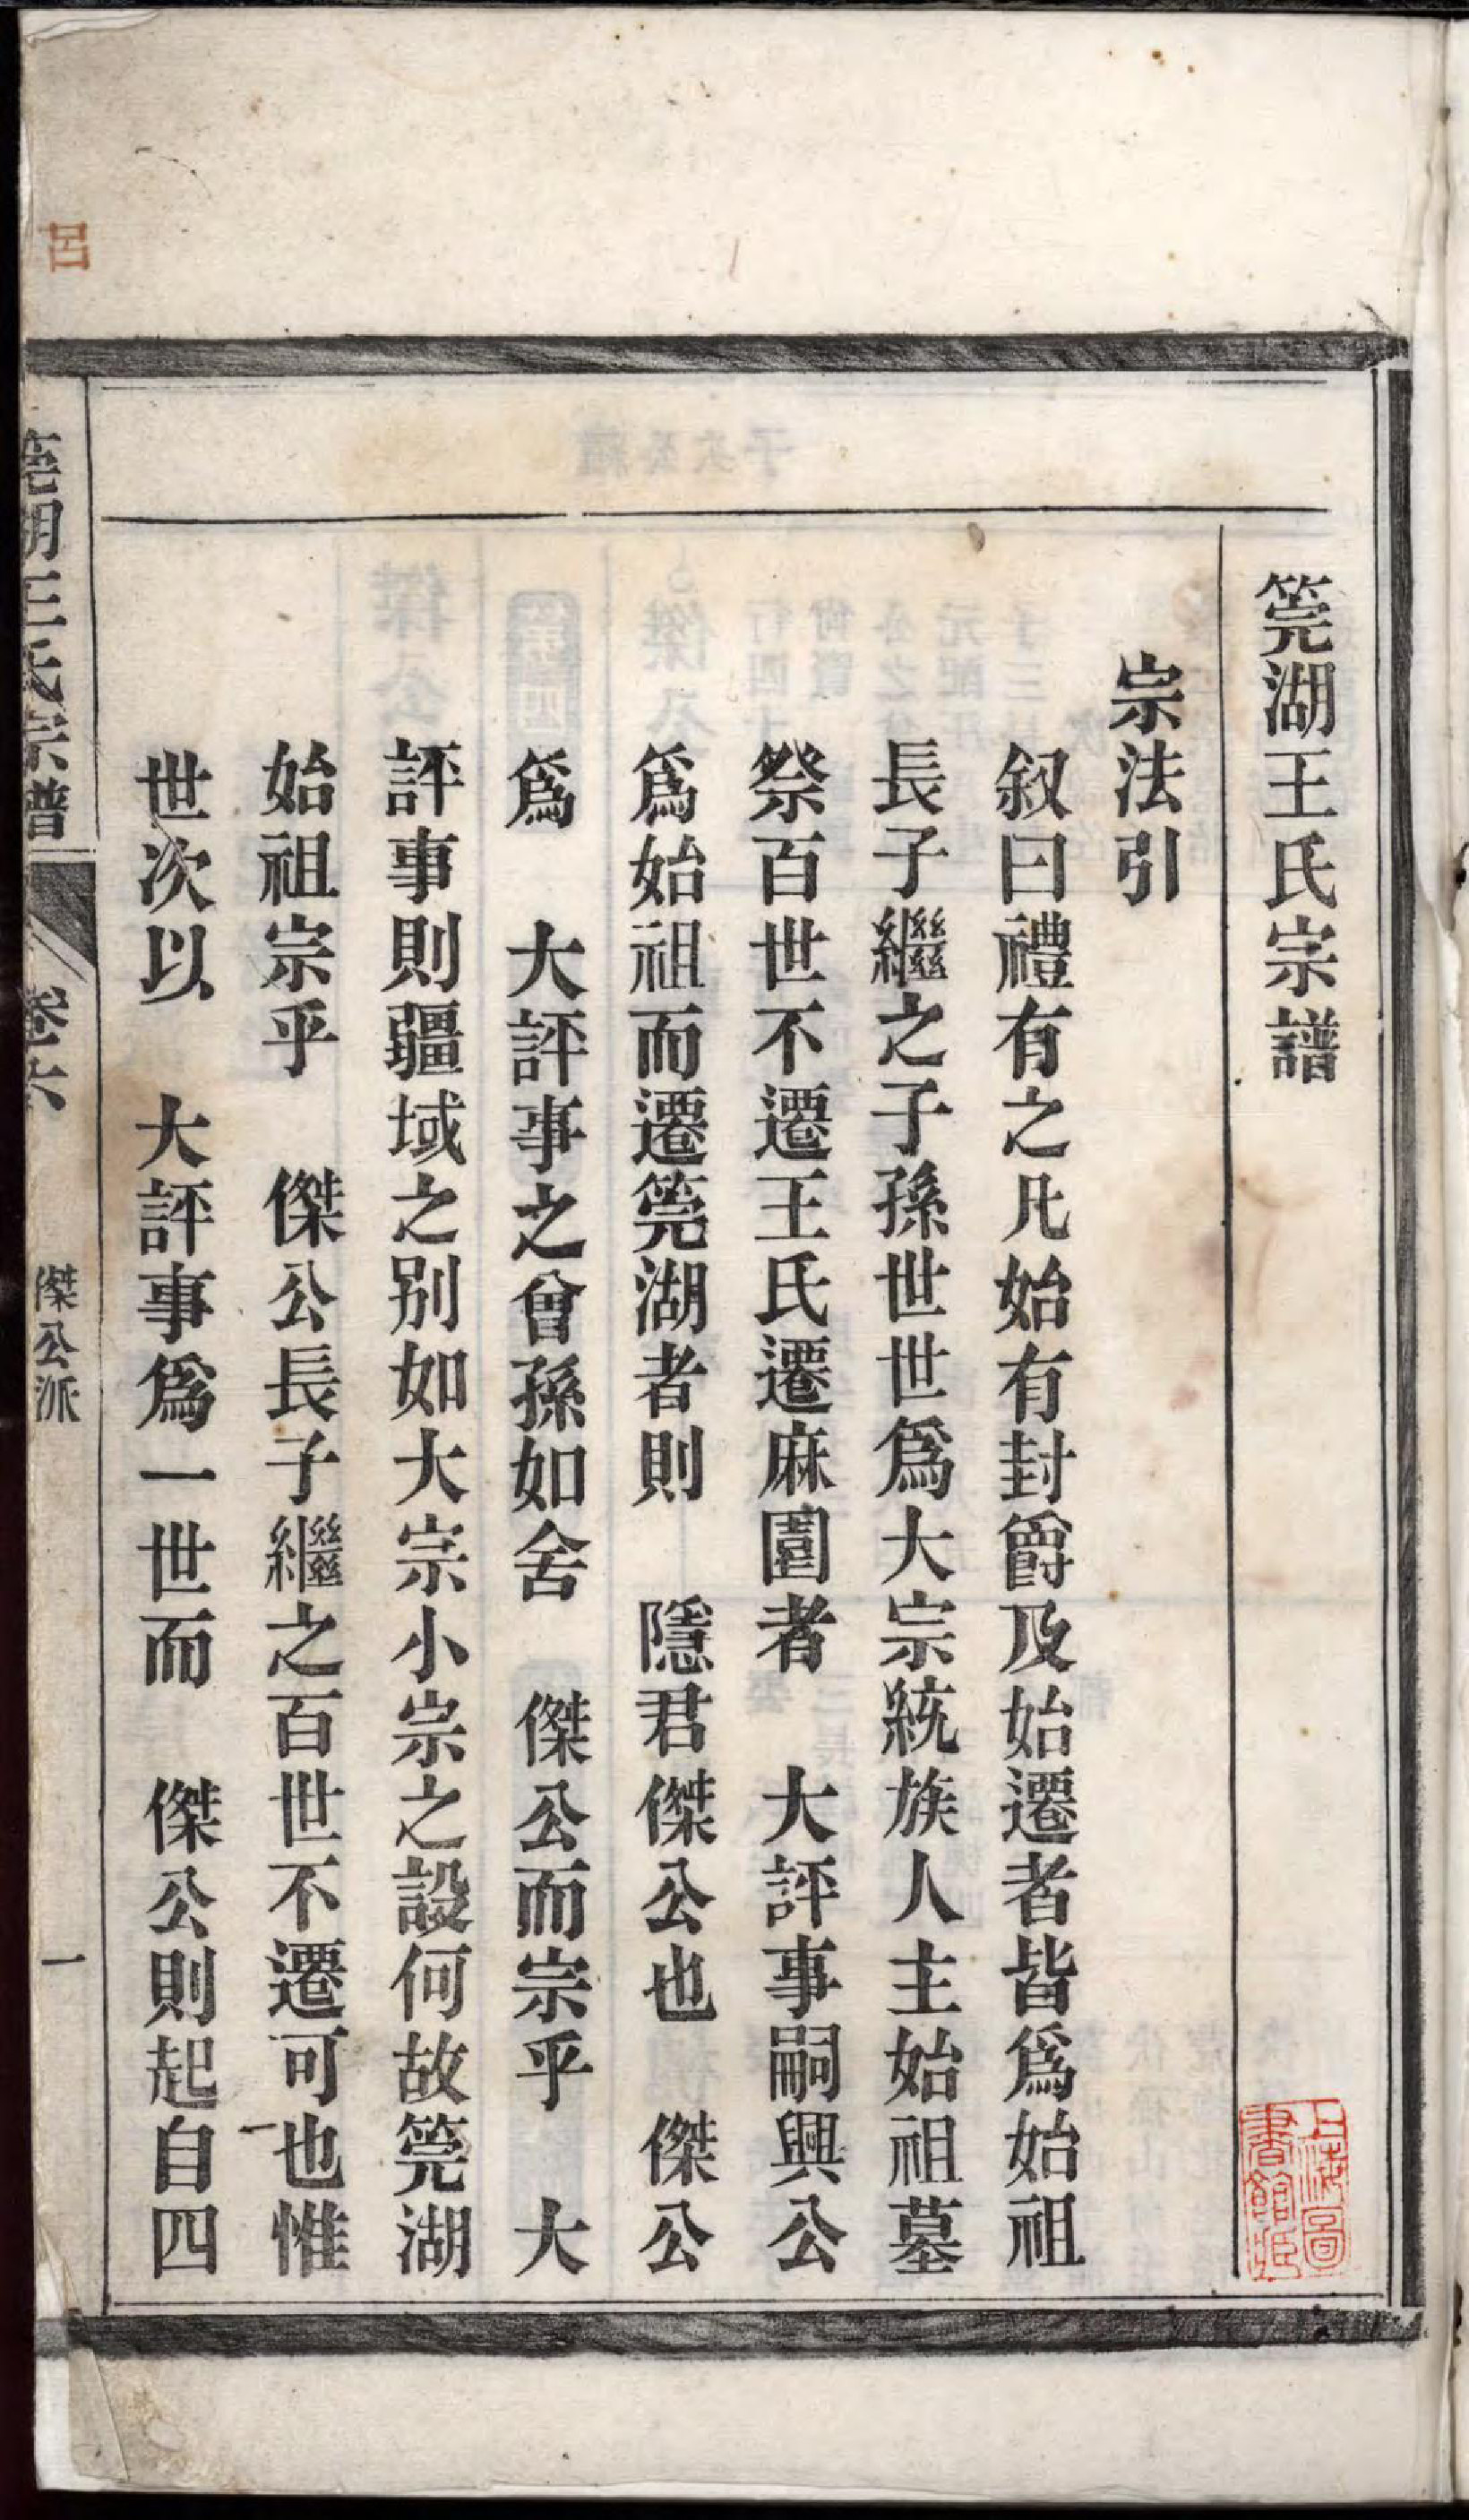 筦湖王氏宗譜
宗法引
叙曰禮有之凡始有封爵及始遷者皆爲始祖
長子繼之子孫世世爲大宗統族人主始祖墓
祭百世不遷王氏遷麻園者　大評事嗣興公
爲始祖而遷筦湖者則　隱君傑公也　傑公
爲　大評事之曾孫如舍　傑公而宗乎　大
評事則疆域之別如大宗小宗之設何故筦湖
始祖宗乎　傑公長子繼之百世不遷可也惟
世次以　大評事爲一世而　傑公則起自四
筦湖王氏宗譜
卷六
傑公派
一
呂
上海圖
書館藏